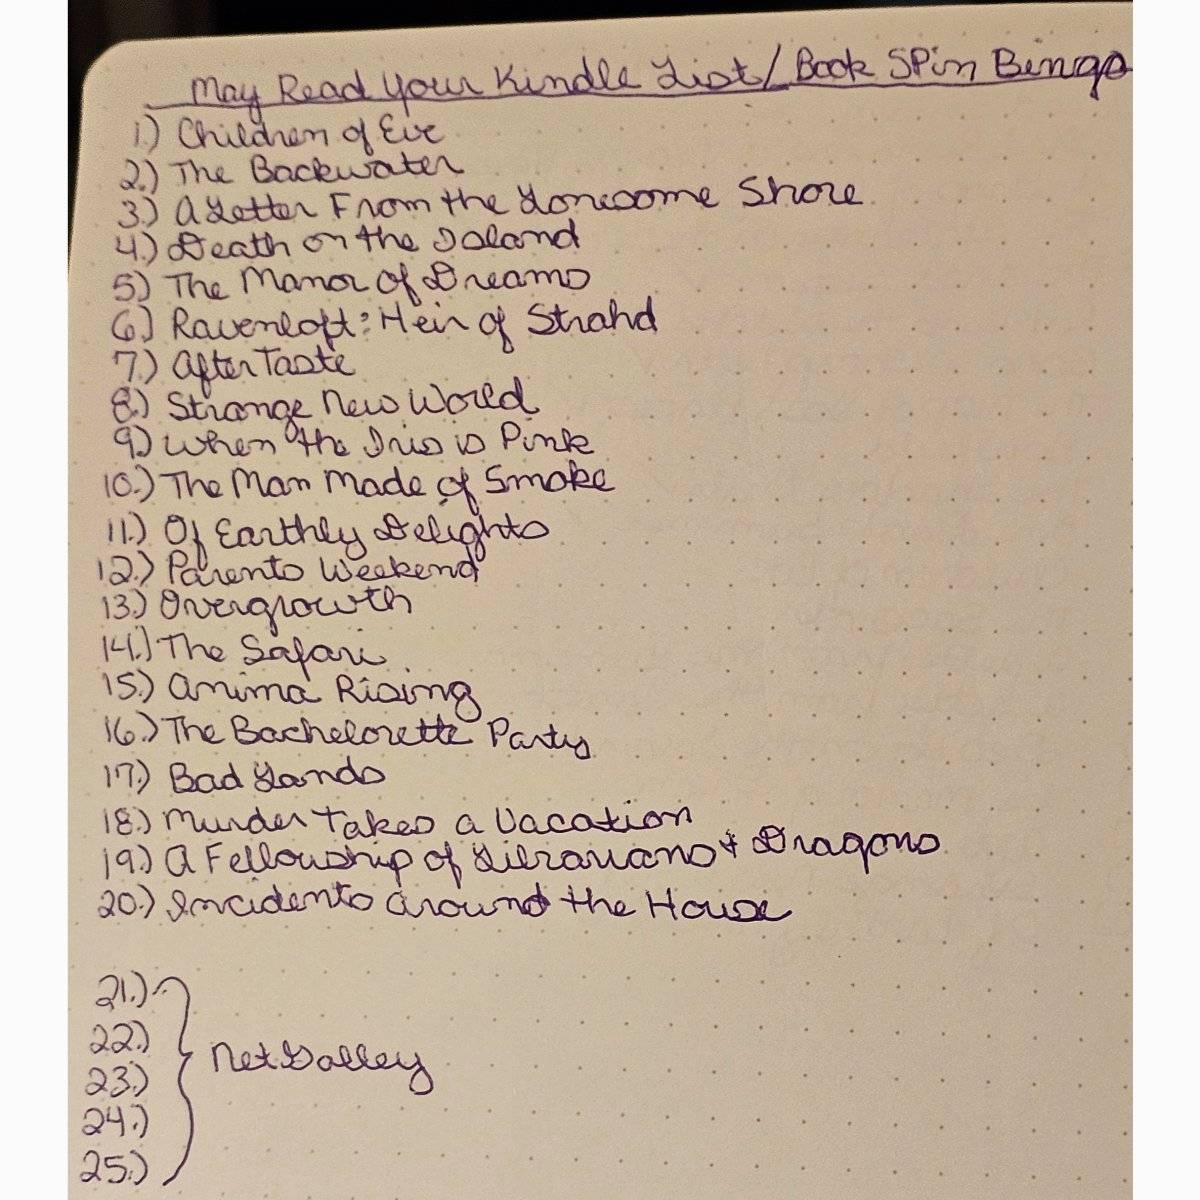 May Read Your Kindle List/Book Spin Bingo
1.) Children of Eve
2.) The Backwater
3.) A Letter From the Lonesome Shore
4.) Death on the Island
5.) The Manor of Dreams
6.) Ravenloft: Heir of Strahd
7.) After Taste
8.) Strange New World
9.) When the Iris is Pink
10.) The Man Made of Smoke
11.) Of Earthly Delights
12.) Parents Weekend
13.) Overgrowth
14.) The Safari
15.) Anima Rising
16.) The Bachelorette Party
17.) Bad Lands
18.) Murder Takes a Vacation
19.) A Fellowship of Librarians & Dragons
20.) Incidents Around the House
21.)
22.)
23.)
24.)
25.)
NetGalley